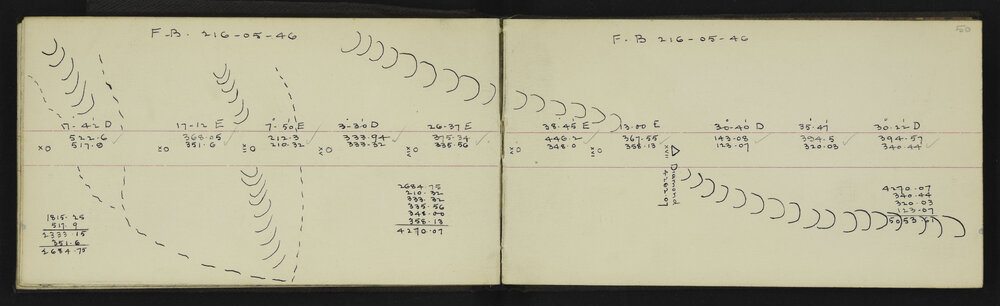 F-B. 216-05-46
17-42 D
522.6
517.9
17-12 E
368.05
351.6
7-50 E
212.3
210.32
3-30 D
333.94
333.32
26-37 E
375.34
335.56
1815.25
517.9
2333.15
351.6
2684.75
2684.75
210.32
333.32
335.56
348.00
358.13
4270.07
50
F-B 216-05-46
38-45 E
446.2
348.0
13.00 E
367.55
358.13
30-40 D
143.08
123.07
35.47
394.5
320.03
30.22 D
394.57
340.44
4270.07
340.44
320.03
123.07